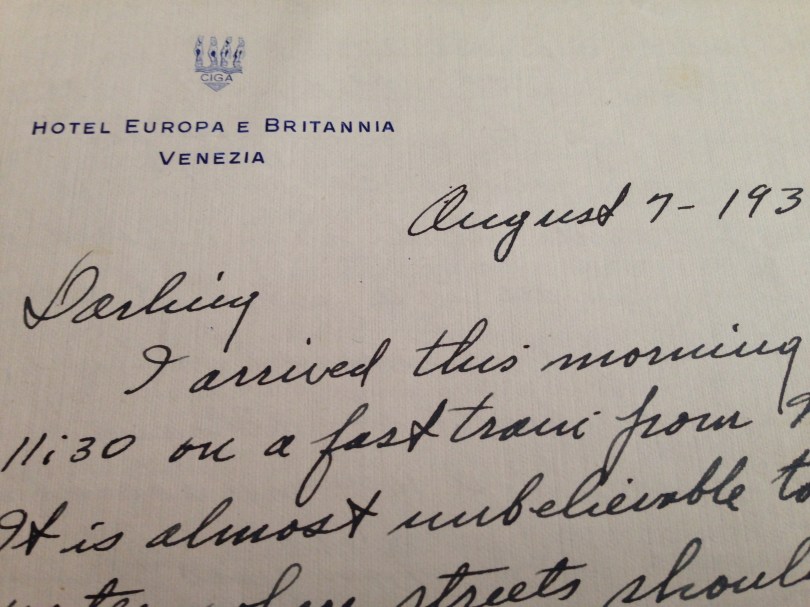 CIGA
HOTEL EUROPA E BRITANNIA
VENEZIA
August 7 - 193
Darling
I arrived this morning
11:30 on a fast train from
It is almost unbelievable to
water where streets shoul